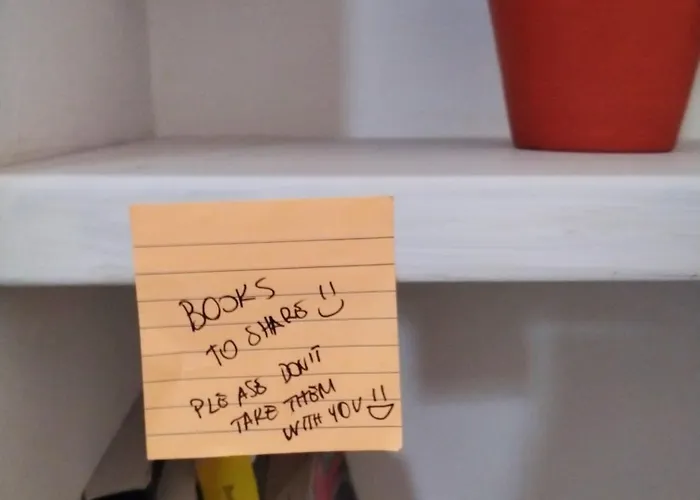 BOOKS
TO SHARE
PLEASE DON'T
TAKE THEM
WITH YOU